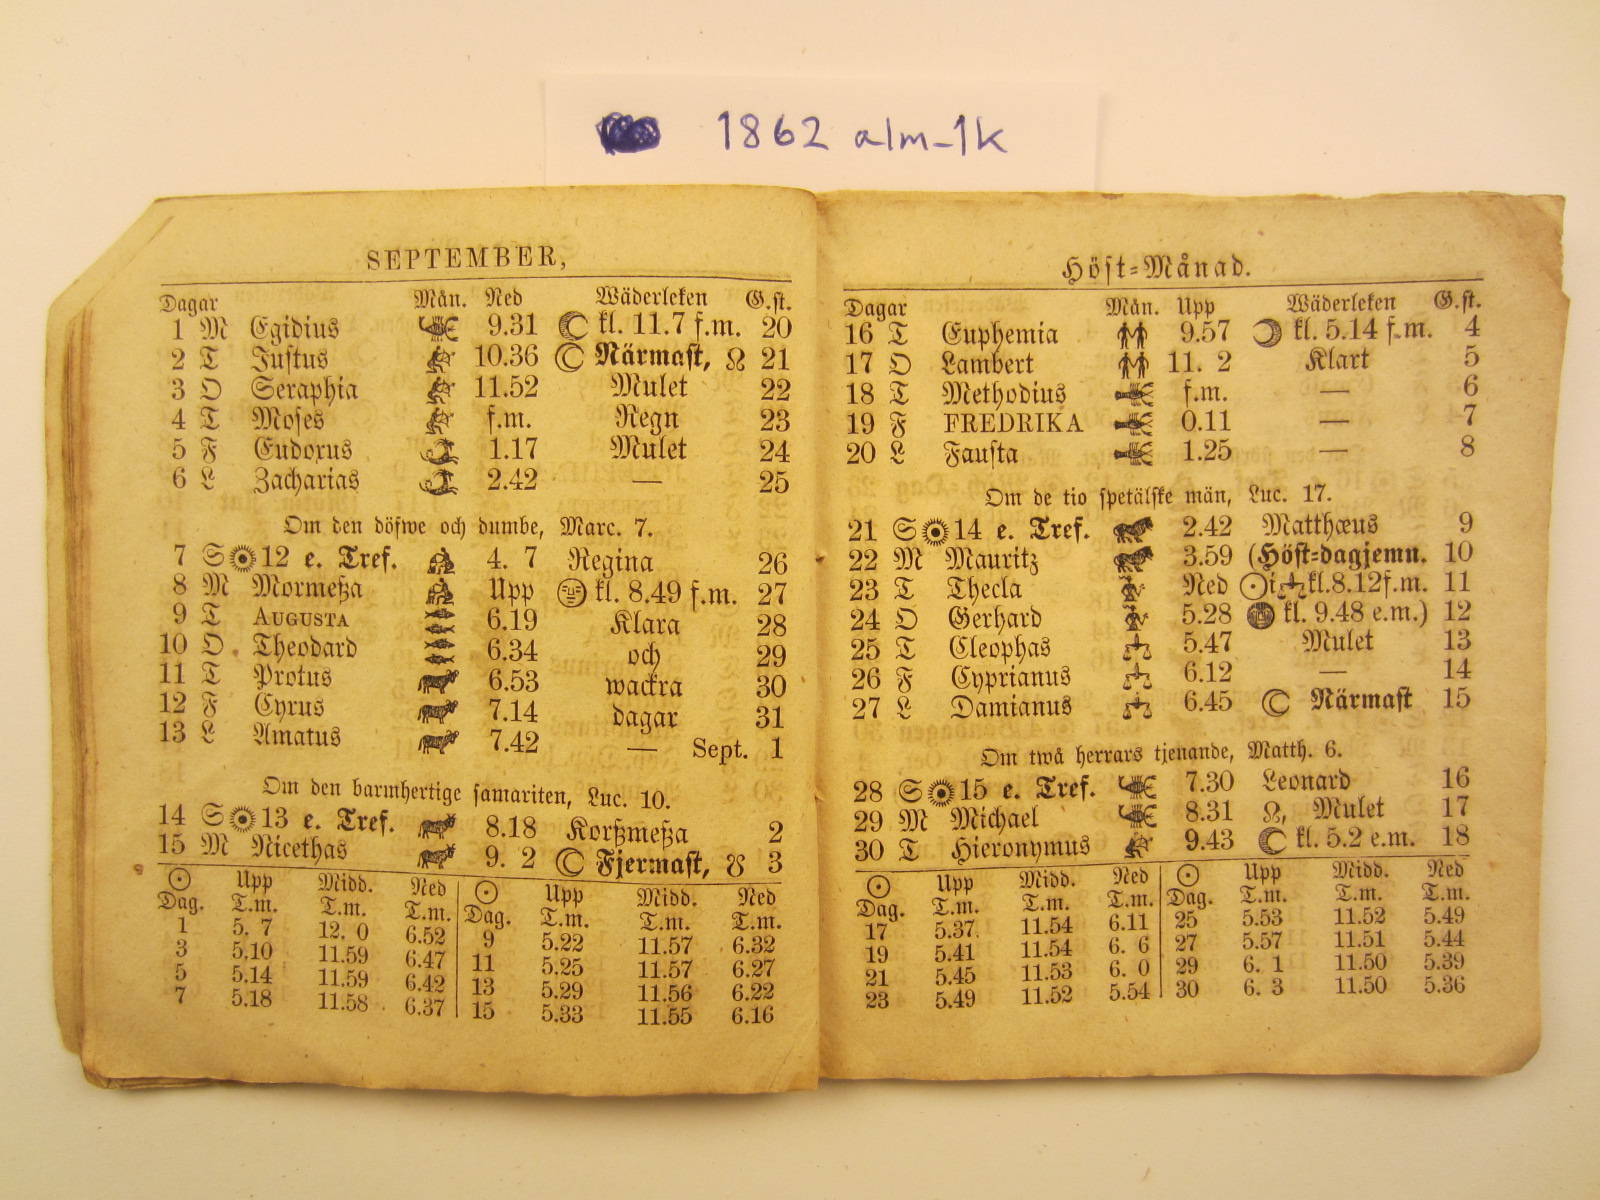 1862 alm-1k
SEPTEMBER,
Dagar Mån. Ned Wäderleken G.st.
1 M Egidius 9.31 kl. 11.7 f.m. 20
2 T Justus 10.36 Närmast, ☊ 21
3 O Seraphia 11.52 Mulet 22
4 T Moses f.m. Regn 23
5 F Eudoxus 1.17 Mulet 24
6 L Zacharias 2.42 — 25
Om den döfwe och dumbe, Marc. 7.
7 S 12 e. Tref. 4. 7 Regina 26
8 M Mormeßa Upp kl. 8.49 f.m. 27
9 T AUGUSTA 6.19 Klara 28
10 O Theodard 6.34 och 29
11 T Protus 6.53 wackra 30
12 F Cyrus 7.14 dagar 31
13 L Amatus 7.42 — Sept. 1
Om den barmhertige samariten, Luc. 10.
14 S 13 e. Tref. 8.18 Korßmeßa 2
15 M Nicethas 9. 2 Fjermast, ☋ 3
☉ Upp Midd. Ned ☉ Upp Midd. Ned
Dag. T.m. T.m. T.m. Dag. T.m. T.m. T.m.
1 5. 7 12. 0 6.52 9 5.22 11.57 6.32
3 5.10 11.59 6.47 11 5.25 11.57 6.27
5 5.14 11.59 6.42 13 5.29 11.56 6.22
7 5.18 11.58 6.37 15 5.33 11.55 6.16
Höst-Månad.
Dagar Mån. Upp Wäderleken G.st.
16 T Euphemia 9.57 kl. 5.14 f.m. 4
17 O Lambert 11. 2 Klart 5
18 T Methodius f.m. — 6
19 F FREDRIKA 0.11 — 7
20 L Fausta 1.25 — 8
Om de tio spetälske män, Luc. 17.
21 S 14 e. Tref. 2.42 Matthæus 9
22 M Mauritz 3.59 (Höst-dagjemn. 10
23 T Thecla Ned ☉ i ♎ kl.8.12f.m. 11
24 O Gerhard 5.28 kl. 9.48 e.m.) 12
25 T Cleophas 5.47 Mulet 13
26 F Cyprianus 6.12 — 14
27 L Damianus 6.45 Närmast 15
Om twå herrars tjenande, Matth. 6.
28 S 15 e. Tref. 7.30 Leonard 16
29 M Michael 8.31 ☊, Mulet 17
30 T Hieronymus 9.43 kl. 5.2 e.m. 18
☉ Upp Midd. Ned ☉ Upp Midd. Ned
Dag. T.m. T.m. T.m. Dag. T.m. T.m. T.m.
17 5.37 11.54 6.11 25 5.53 11.52 5.49
19 5.41 11.54 6. 6 27 5.57 11.51 5.44
21 5.45 11.53 6. 0 29 6. 1 11.50 5.39
23 5.49 11.52 5.54 30 6. 3 11.50 5.36